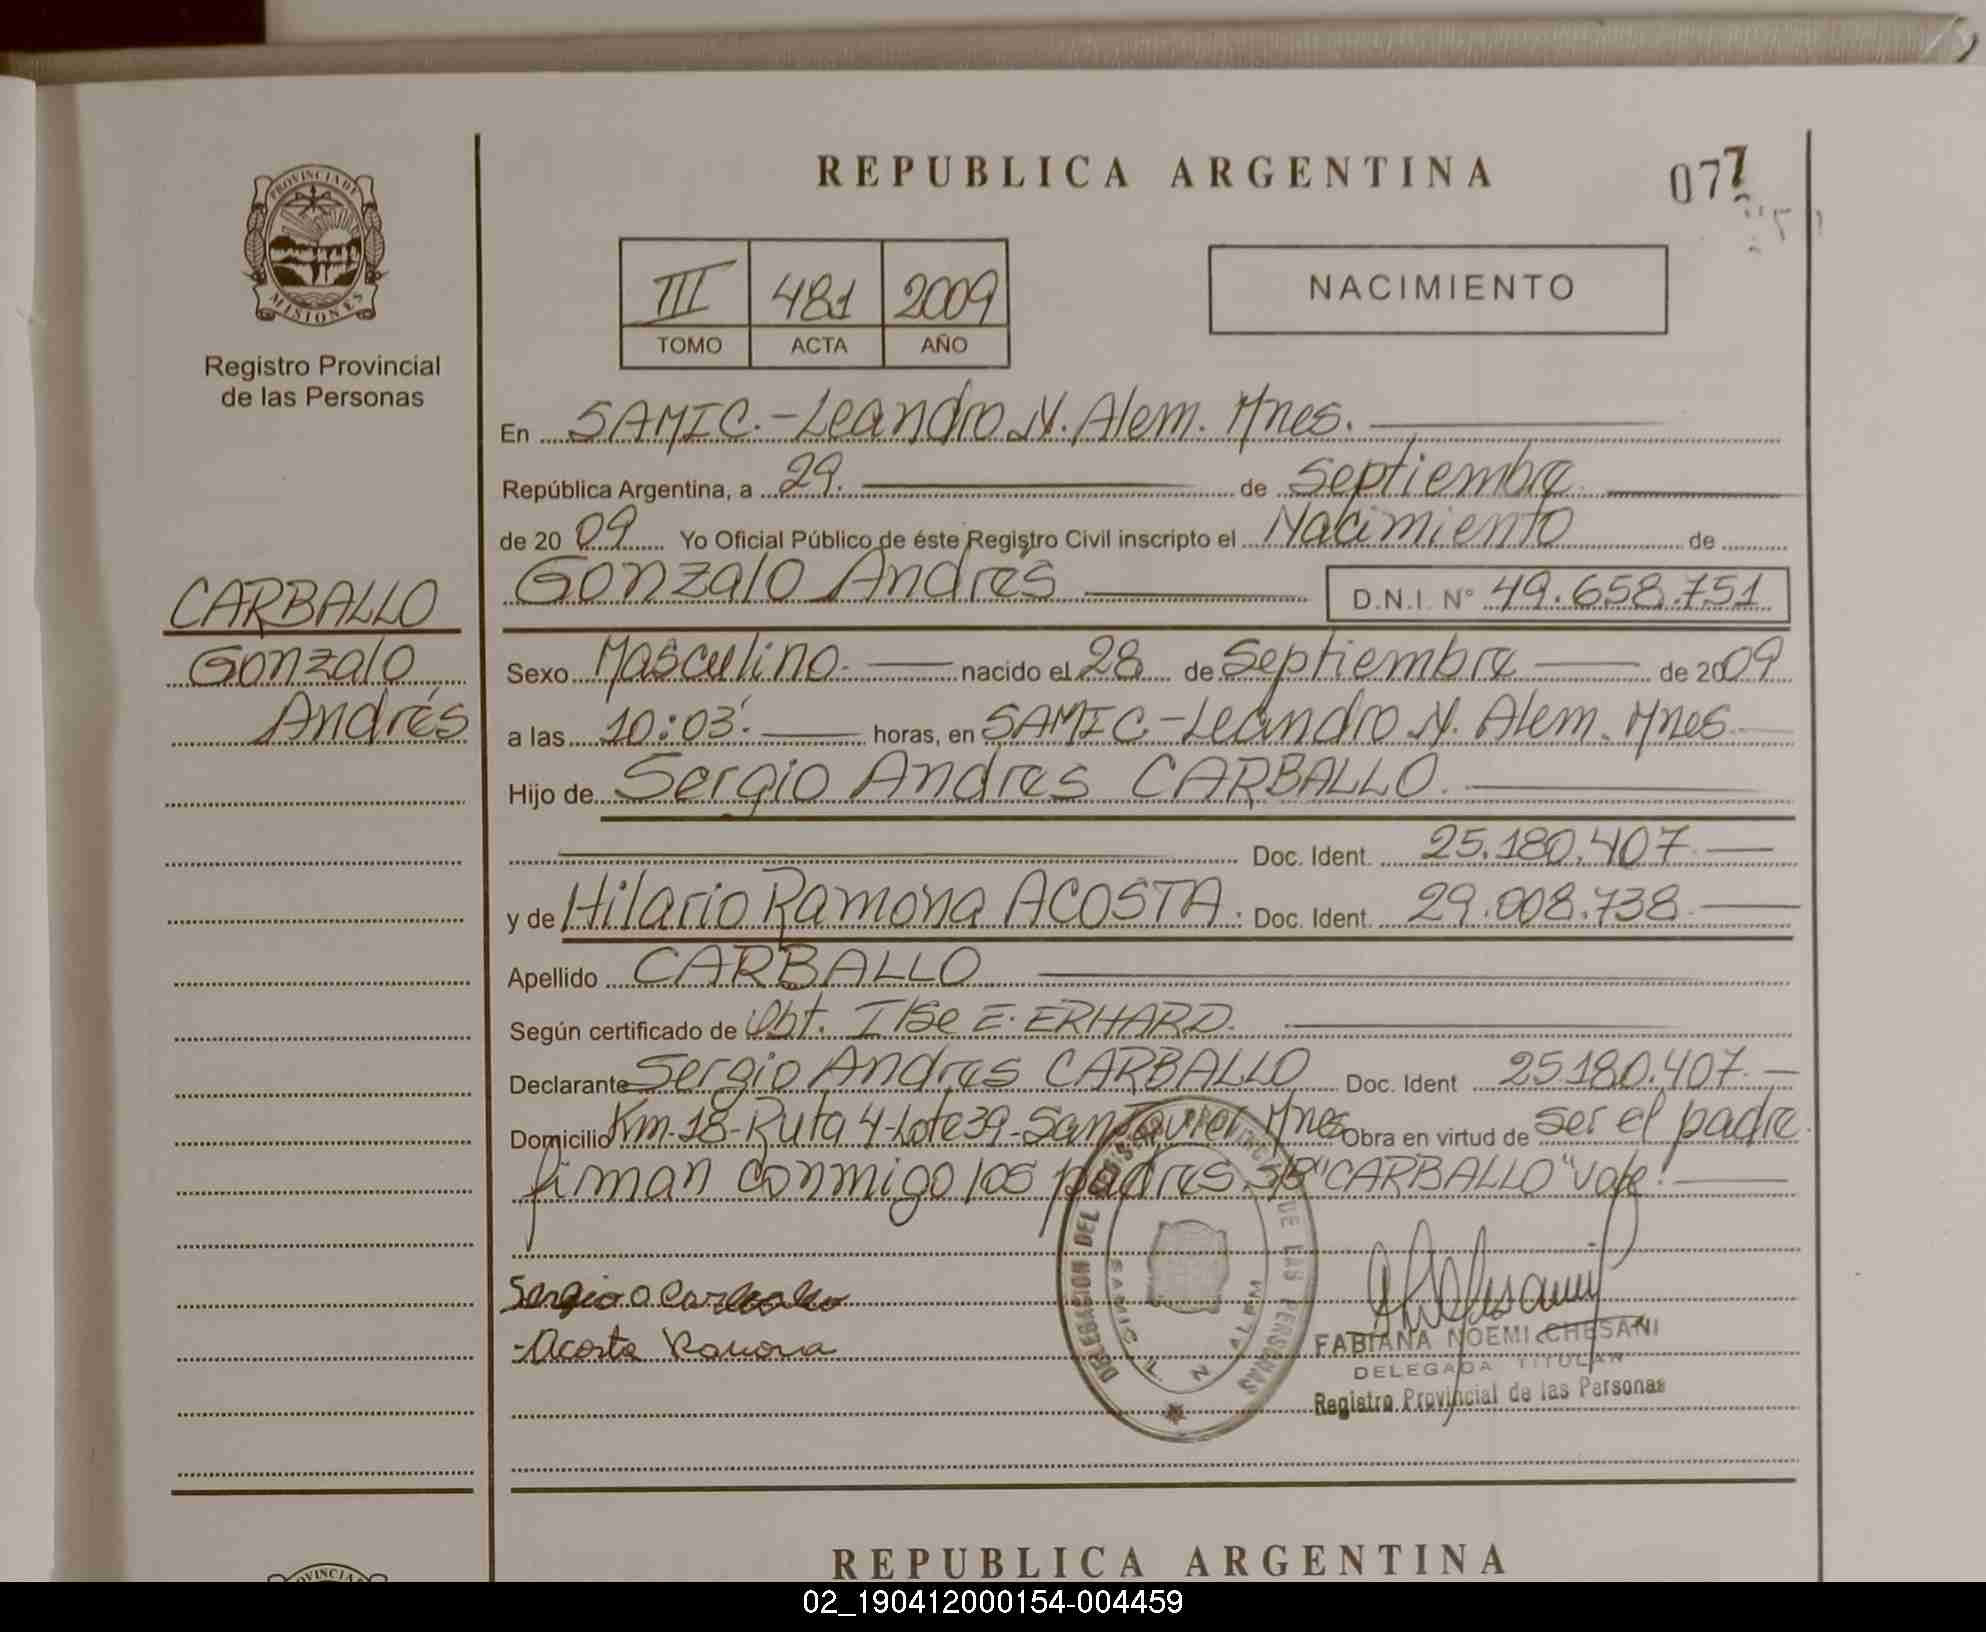 REPUBLICA ARGENTINA
077
PROVINCIA DE
MISIONES
Registro Provincial
de las Personas
III 481 2009
TOMO ACTA AÑO
NACIMIENTO
En SAMIC.-Leandro N. Alem. Mnes.
República Argentina, a 29. de Septiembre
de 2009 Yo Oficial Público de éste Registro Civil inscripto el Nacimiento de
Gonzalo Andrés D.N.I. N° 49.658.751
CARBALLO
Gonzalo
Andrés
Sexo Masculino. nacido el 28 de Septiembre de 2009
a las 10:03'. horas, en SAMIC-Leandro N. Alem. Mnes
Hijo de Sergio Andres CARBALLO.
Doc. Ident. 25.180.407.
y de Hilario Ramona ACOSTA. Doc. Ident. 29.008.738.
Apellido CARBALLO
Según certificado de Obt. Ilse E. ERHARD.
Declarante Sergio Andres CARBALLO Doc. Ident 25180.407.
Domicilio Km-18-Ruta 4-Lote 39-San Javier Mnes Obra en virtud de ser el padre
firman conmigo los padres. S/B "CARBALLO" vale.
Sergio a Carballo
-Acosta Ramona
DELEGACION DEL REGISTRO DE LAS PERSONAS
SAMIC L N ALEM
FABIANA NOEMI CHESANI
DELEGADA TITULAR
Registro Provincial de las Personas
REPUBLICA ARGENTINA
02_190412000154-004459